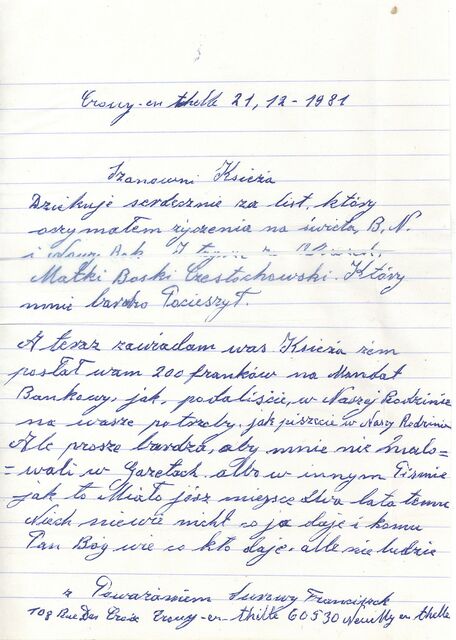 Crouy-en thelle 21, 12 - 1981
Szanowni Księża
Dziękuje serdecznie za list, który
oczymałem życzenia na święta B. N.
i Nowy Rok
Matki Boski Częstochowski. Który
mnie bardzo Pocieszył.
A teraz zawiadam was Księża żem
posłał wam 200 franków na Mandat
Bankowy, jak, podaliście, w Naszej Rodzinie
na wasze potrzeby, jak piszecie w Naszy Rodzinie
Ale prosze bardzo, aby mnie nie
= wali w Gazetach. albo w innym Piśmie
jak to Miało jósz miejsce Dwa lata temu
Niech niewie nicht co ja daje i komu
Pan Bóg wie co kto daje. alle nie ludzie
z Poważaniem Surowy Franciszek
108 Rue Des Croix Crouy-en thelle 60530 Neuilly en thelle